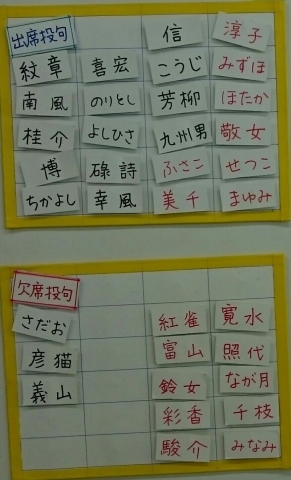 出席投句 信 淳子
紋章 喜宏 こうじ みずほ
南風 のりとし 芳柳 ほたか
桂介 よしひさ 九州男 敬女
博 碌詩 ふさこ せつこ
ちかよし 幸風 美千 まゆみ
欠席投句
さだお 紅雀 寛水
彦猫 富山 照代
義山 鈴女 なが月
彩香 千枝
駿介 みなみ